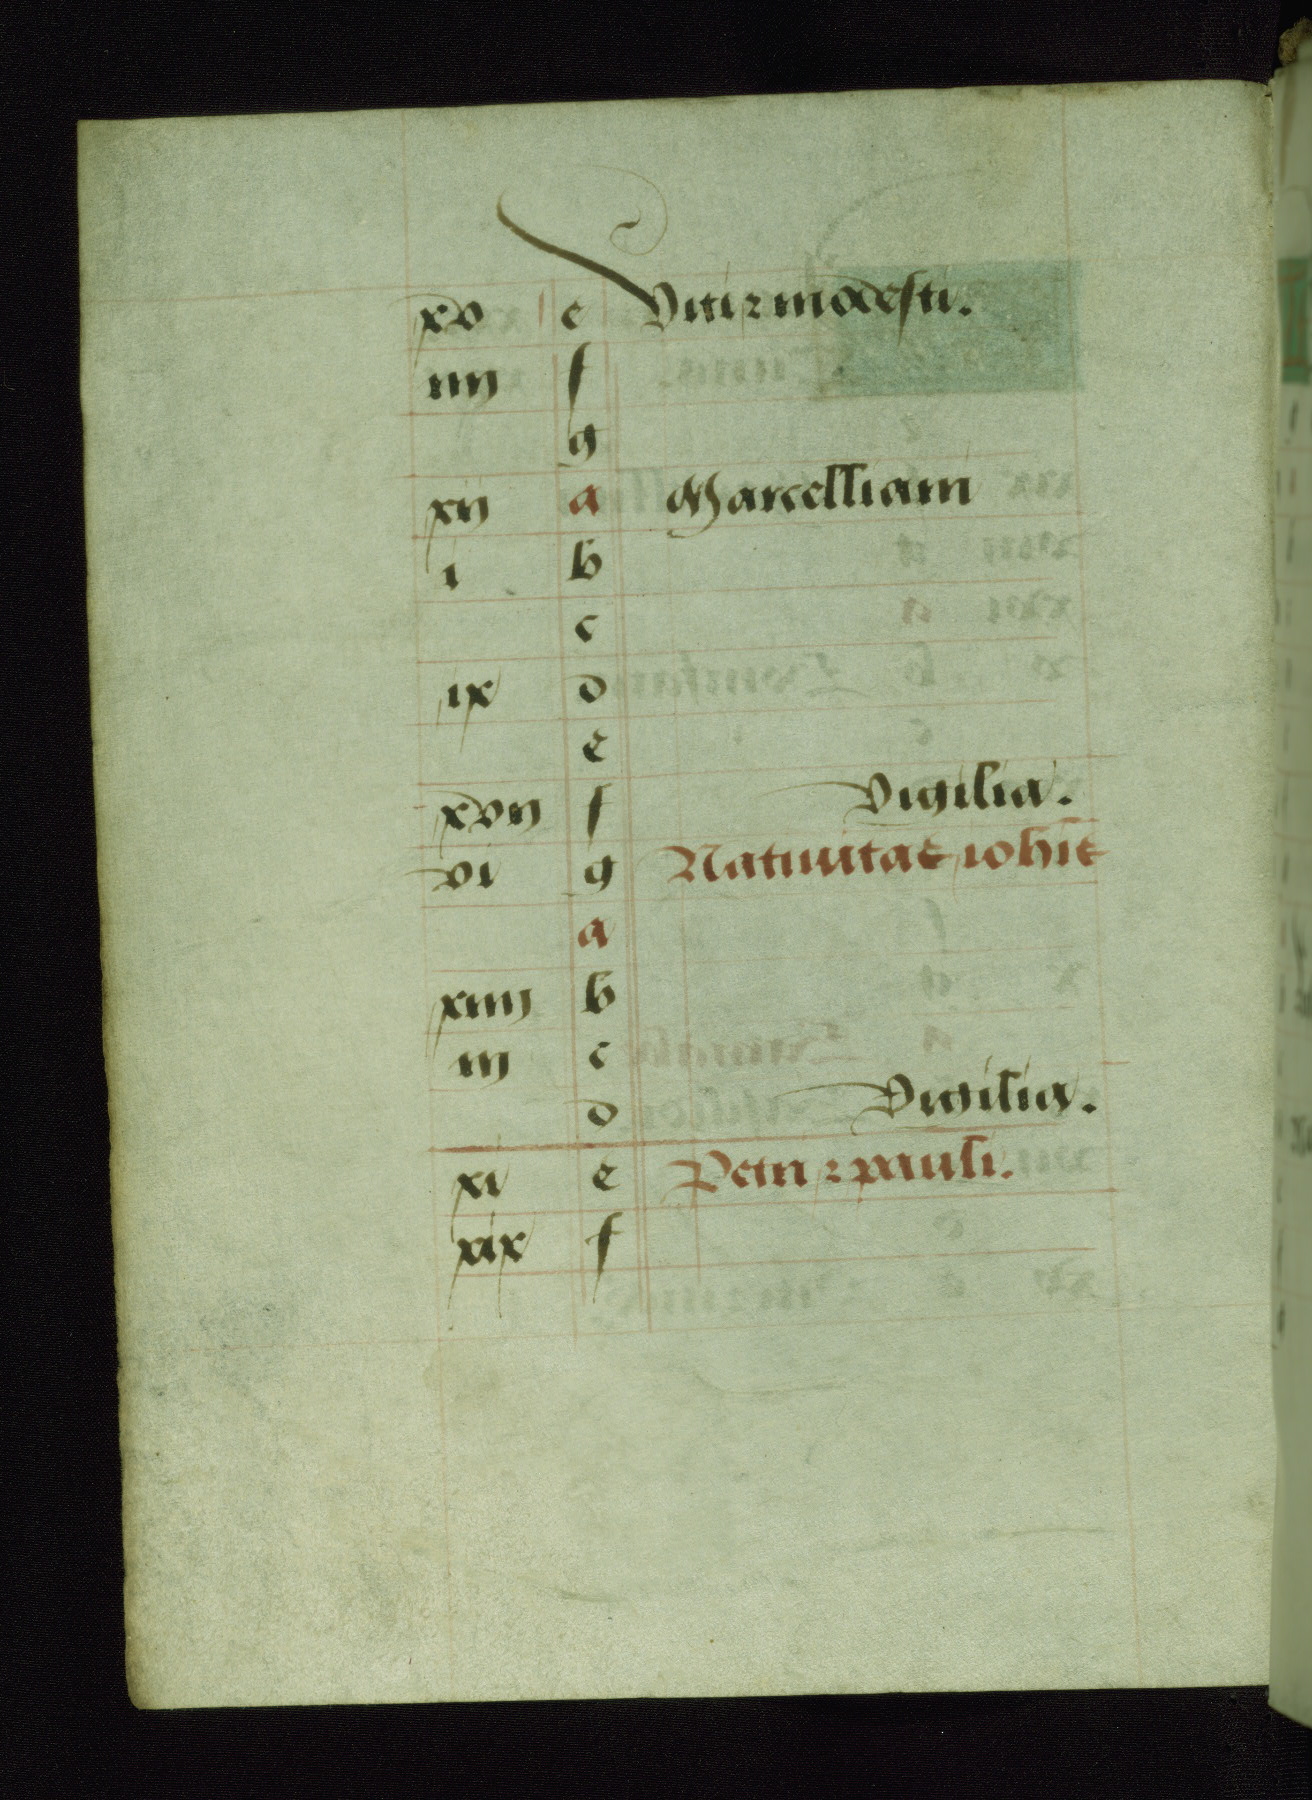 xv e Viti ⁊ modesti.
iiij f
g
xij a Marcelliani
i b
c
ix d
e
xvij f Vigilia.
vi g Natiuitas iohis
a
xiiij b
iij c
d Vigilia.
xi e Petri ⁊ pauli.
xix f